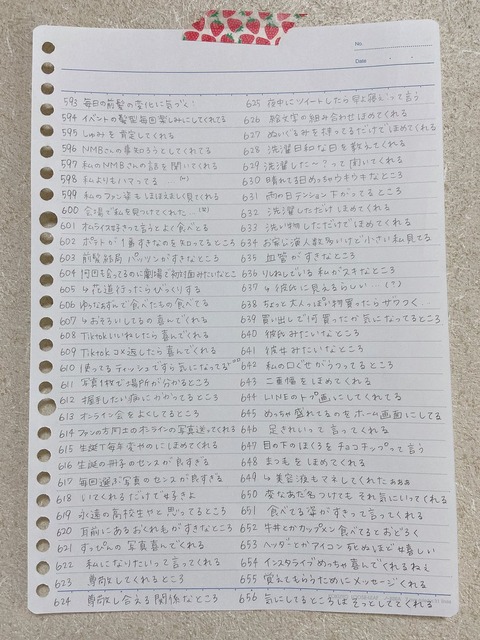 No.
Date
593 毎日の前髪の変化に気づく!
594 イベントの髪型毎回楽しみにしてくれてる
595 しゅみを肯定してくれる
596 NMBさんの事知ろうとしてくれてる
597 私のNMBさんの話を聞いてくれる
598 私よりもハマってる
599 私のファン姿もほほえましく見てくれる
600 会場で私を見つけてくれた
601 オムライスすきって言うとよく食べとる
602 ポテトが1番すきなのを知ってるところ
603 前髪結局パッツンがすきなところ
604 何回も会ってるのに劇場で初対面みたいなとこ
605 4花道行ったらびっくりする
606 ゆなぁずんで食べたもの食べてる
607 4おそろいしてるの喜んでくれる
608 Tiktokいいねしたら喜んでくれる
609 Tiktokコメ返したら喜んでくれる
610 使ってるティッシュですら気になってる
611 写真1枚で場所が分かるところ
612 握手したい病にかかってるところ
613 オンライン会をよくしてるところ
614 ファンの方同士のオンラインの写真送ってくれる
615 生誕T毎年変やのにほめてくれる
616 生誕の冊子のセンスが良すぎる
617 毎回選ぶ写真のセンスが良すぎる
618 いてくれるだけで4好きよ
619 永遠の高校生やと思ってるところ
620 耳前にあるおくれ毛がすきなところ
621 すっぴんの写真喜んでくれる
622 私になりたいって言ってくれる
623 尊敬してくれるところ
624 尊敬し合える関係なところ
625 夜中にツイートしたら早よ寝ぇって言う
626 絵文字の組み合わせほめてくれる
627 ぬいぐるみを持ってるだけでほめてくれる
628 洗濯日和な日を教えてくれる
629 洗濯した〜?って聞いてくれる
630 晴れてる日めっちゃウキウキなところ
631 雨の日テンション下がってるところ
632 洗濯しただけでほめてくれる
633 洗い物しただけでほめてくれる
634 お客さん人数多いけど小さい私見てる
635 血管がすきなところ
636 りしねしている私がスキなところ
637 4彼氏に見えるらしい…(?)
638 ちょっと大人っぽい物買ったらザワつく…
639 買い出しで何買ったか気になってるところ
640 彼氏みたいなところ
641 4彼女みたいなところ
642 私の口ぐせがうつってるところ
643 二重幅をほめてくれる
644 LINEのトプ画にしてくれてる
645 めっちゃ盛れてるのをホーム画面にしてる
646 足きれいって言ってくれる
647 目の下のほくろをチョコチップって言う
648 まつ毛をほめてくれる
649 4美容液もマネしてくれたぁぁぁ
650 変なあだ名つけてもそれ気にいってくれる
651 食べてる姿がすきって言ってくれる
652 牛丼とかカップメン食べてるとおどろく
653 ヘッダーとかアイコン死ぬほど4嬉しい
654 インスタライブめっちゃ喜んでくれるねぇ
655 覚えてもらうためにメッセージくれる
656 気にしてるところはそっとしててくれる